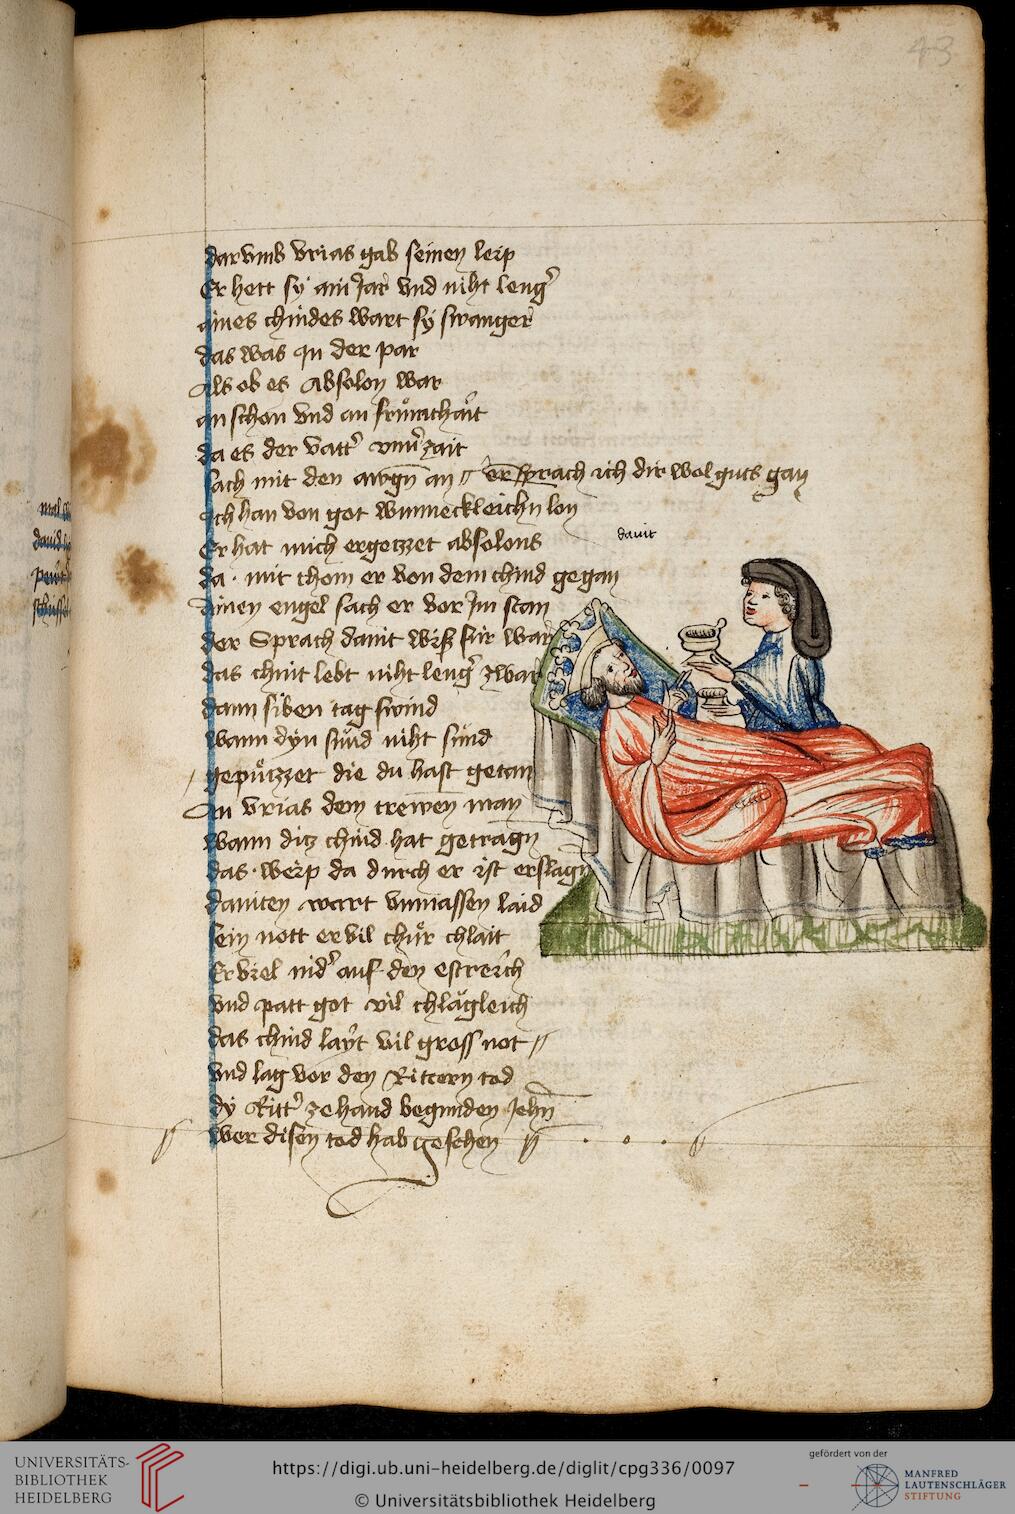 43
dar vmb vrias gab seinen leip
Er hett sy ain Jar vnd niht leng'
aines chindes wart sy swanger
das was In der par
Als ob es Absolon war
an schon vnd an
da es der vatt'
sach mit den awgn an er sprach ich dir wol guts gan
Ich han von got wunnecklichn lon
Er hat mich ergetzzet absolons
dauit
da mit chom er von dem chind gegan
ainen engel sach er vor Im stan
der Sprach dauit wiß fur war
das chint lebt niht leng' zwar
dann siben tag swind
wann dyn sind
gepützzet die du hast getan
An vrias dem trewen man
wann ditz chind hat getragn
das weip da durch er ist erslagn
dauiten wart vnmassen laid
sein nott er vil chlait
Er viel nid' auf den estreich
vnd patt got vil chlägleich
das chind layt vil gross not
vnd lag vor den Rittern tod
dy Ritt' ze hand begunden Jehn
wer disen tod hab gesehen
UNIVERSITÄTS-
BIBLIOTHEK
HEIDELBERG
https://digi.ub.uni-heidelberg.de/diglit/cpg336/0097
© Universitätsbibliothek Heidelberg
gefördert von der
MANFRED
LAUTENSCHLÄGER
STIFTUNG